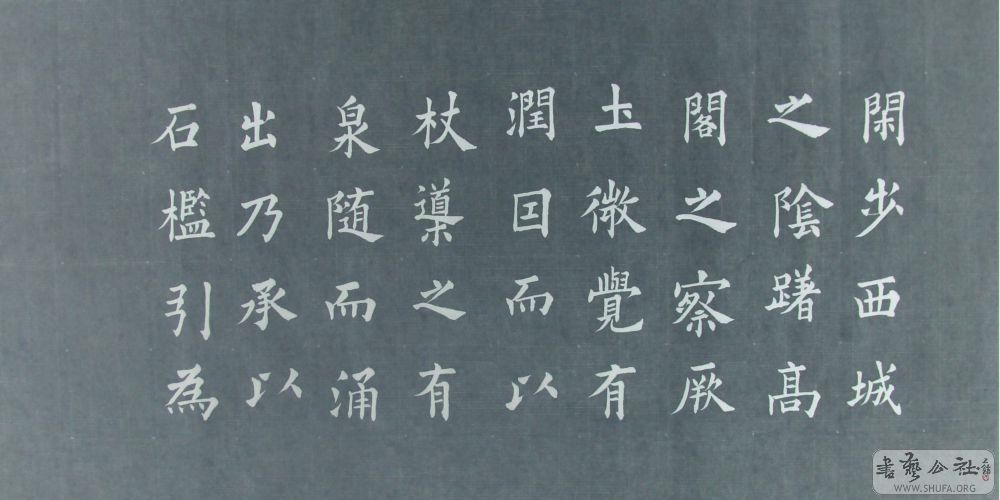 閑步西城
之陰躇高
閣之察厥
圡微覺有
潤囙而以
杖導之有
泉随而涌
出乃承以
石檻引為
書藝公社
WWW.SHUFA.ORG